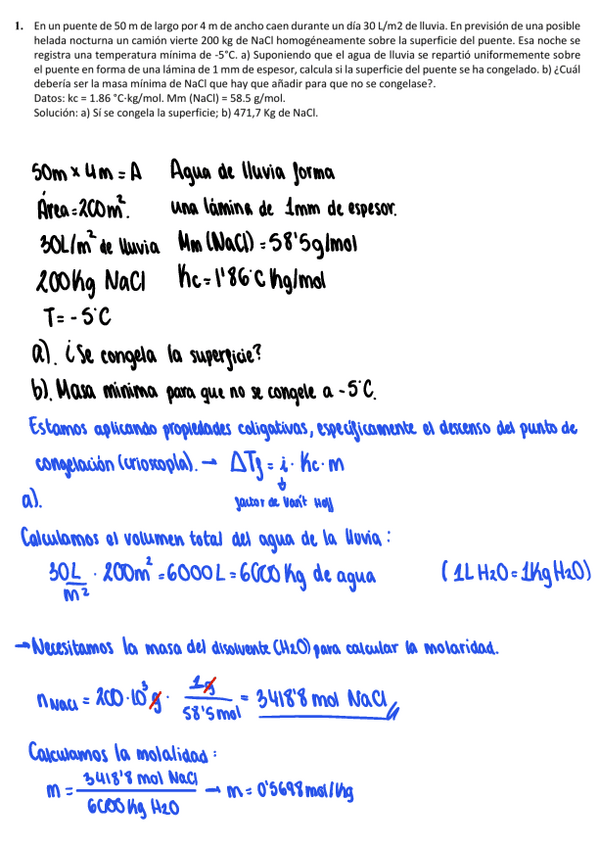 1. En un puente de 50 m de largo por 4 m de ancho caen durante un día 30 L/m2 de lluvia. En previsión de una posible
helada nocturna un camión vierte 200 kg de NaCl homogéneamente sobre la superficie del puente. Esa noche se
registra una temperatura mínima de -5°C. a) Suponiendo que el agua de lluvia se repartió uniformemente sobre
el puente en forma de una lámina de 1 mm de espesor, calcula si la superficie del puente se ha congelado. b) ¿Cuál
debería ser la masa mínima de NaCl que hay que añadir para que no se congelase?.
Datos: kc = 1.86 °C·kg/mol. Mm (NaCl) = 58.5 g/mol.
Solución: a) Sí se congela la superficie; b) 471,7 Kg de NaCl.
50m x 4m = A Agua de lluvia forma
Área = 200m². una lámina de 1mm de espesor.
30L/m² de lluvia Mm (NaCl) = 58'5g/mol
200Kg NaCl Kc = 1'86°C Kg/mol
T = -5°C
a). ¿Se congela la superficie?
b). Masa minima para que no se congele a -5°C.
Estamos aplicando propiedades coligativas, específicamente el descenso del punto de
congelación (crioscopía). → ΔTf = i · Kc · m
factor de Van't Hoff
a).
Calculamos el volumen total del agua de la lluvia:
30L/m² · 200m² = 6000L = 6000 Kg de agua (1L H2O = 1Kg H2O)
→ Necesitamos la masa del disolvente (H2O) para calcular la molaridad.
nNaCl = 200·10³ g · 1g/58'5mol = 3418'8 mol NaCl
Calculamos la molalidad:
m = 3418'8 mol NaCl/6000 Kg H2O → m = 0'5698 mol/Kg